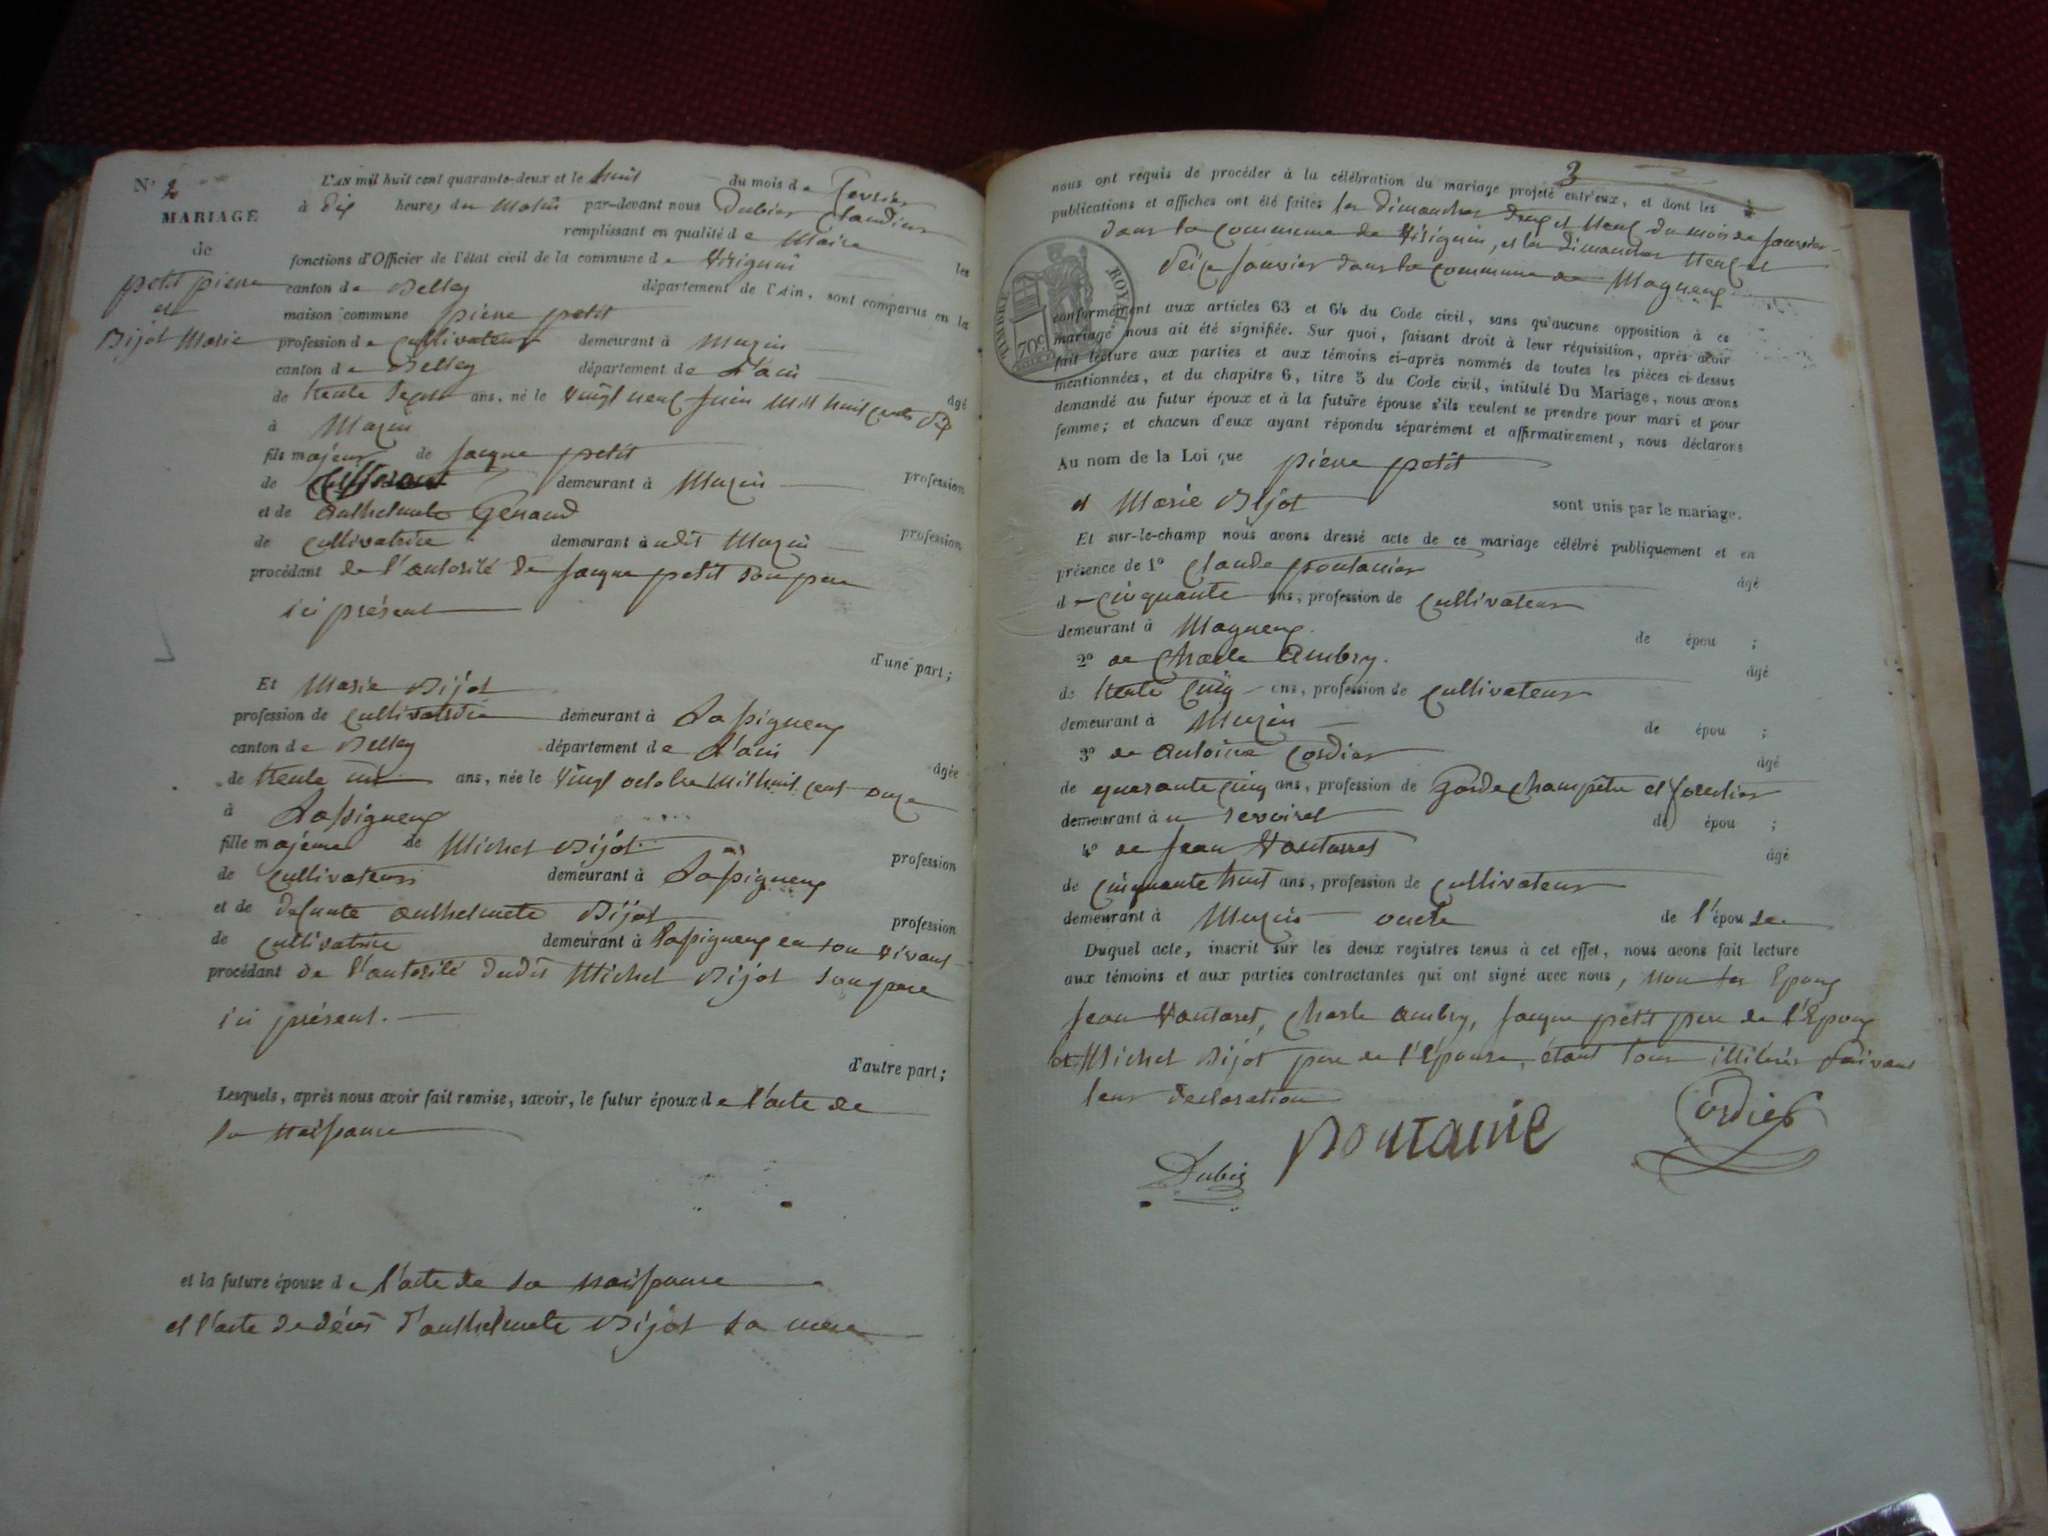 N.° 2
MARIAGE
de
petit pierre
et
Bijot Marie
L'AN mil huit cent quarante-deux et le huit du mois de fevrier
à dix heures du Matin par-devant nous Dubier Claudius
remplissant en qualité de Maire les
fonctions d'Officier de l'état civil de la commune de Virignin
canton de Belley département de l'Ain, sont comparus en la
maison commune pierre petit
profession de Cultivateur demeurant à Muzin
canton de Belley département de L'ain âgé
de trente ans, né le vingt neuf juin Mil huit cents dix
à Muzin
fils majeur de Jacque petit profession
de demeurant à Muzin
et de Anthelmete Genaud profession
de Cultivatrice demeurant audit Muzin
procédant de l'autorité de Jacque petit son pere
ici présent
d'une part;
Et Marie Bijot
profession de Cultivatrice demeurant à
canton de Belley département de L'ain âgée
de trente ans, née le vingt octobre mil huit cent onze
à
fille majeure de Michel Bijot profession
de Cultivateur demeurant à
et de defunte anthelmete Bijot profession
de Cultivatrice demeurant à en son vivant
procédant de l'autorité dudit Michel Bijot son pere
ici présent.
d'autre part;
Lesquels, après nous avoir fait remise, savoir, le futur époux de l'acte de
sa Naissance
et la future épouse de l'acte de sa naissance
et l'acte de décès d'anthelmete Bijot sa mere
3
nous ont requis de procéder à la célébration du mariage projeté entr'eux, et dont les
publications et affiches ont été faites les dimanches deux et Neuf du mois de Janvier
dans la commune de Virignin, et les dimanches Neuf et
Seize Janvier dans la commune de Magneux
TIMBRE ROYAL
70c
conformément aux articles 63 et 64 du Code civil, sans qu'aucune opposition à ce
mariage nous ait été signifiée. Sur quoi, faisant droit à leur réquisition, après avoir
fait lecture aux parties et aux témoins ci-après nommés de toutes les pièces ci-dessus
mentionnées, et du chapitre 6, titre 5 du Code civil, intitulé Du Mariage, nous avons
demandé au futur époux et à la future épouse s'ils veulent se prendre pour mari et pour
femme; et chacun d'eux ayant répondu séparément et affirmativement, nous déclarons
Au nom de la Loi que pierre petit
et Marie Bijot sont unis par le mariage.
Et sur-le-champ nous avons dressé acte de ce mariage célébré publiquement et en
présence de 1° Claude âgé
de Cinquante ans, profession de Cultivateur
demeurant à Magneux de épou ;
2° de Charle Aubry. âgé
de trente Cinq ans, profession de Cultivateur
demeurant à Muzin de épou ;
3° de Antoine Cordier âgé
de quarante Cinq ans, profession de Garde Champêtre et forestier
demeurant à de épou ;
4° de Jean Vautaret âgé
de Cinquante huit ans, profession de Cultivateur
demeurant à Muzin oncle de l'épouse
Duquel acte, inscrit sur les deux registres tenus à cet effet, nous avons fait lecture
aux témoins et aux parties contractantes qui ont signé avec nous, Non les Epoux
Jean Vautaret, Charle Aubry, Jacque petit pere de l'Epoux
et Michel Bijot pere de l'Epouse, étant tous illitérés Suivant
leur declaration
Cordier